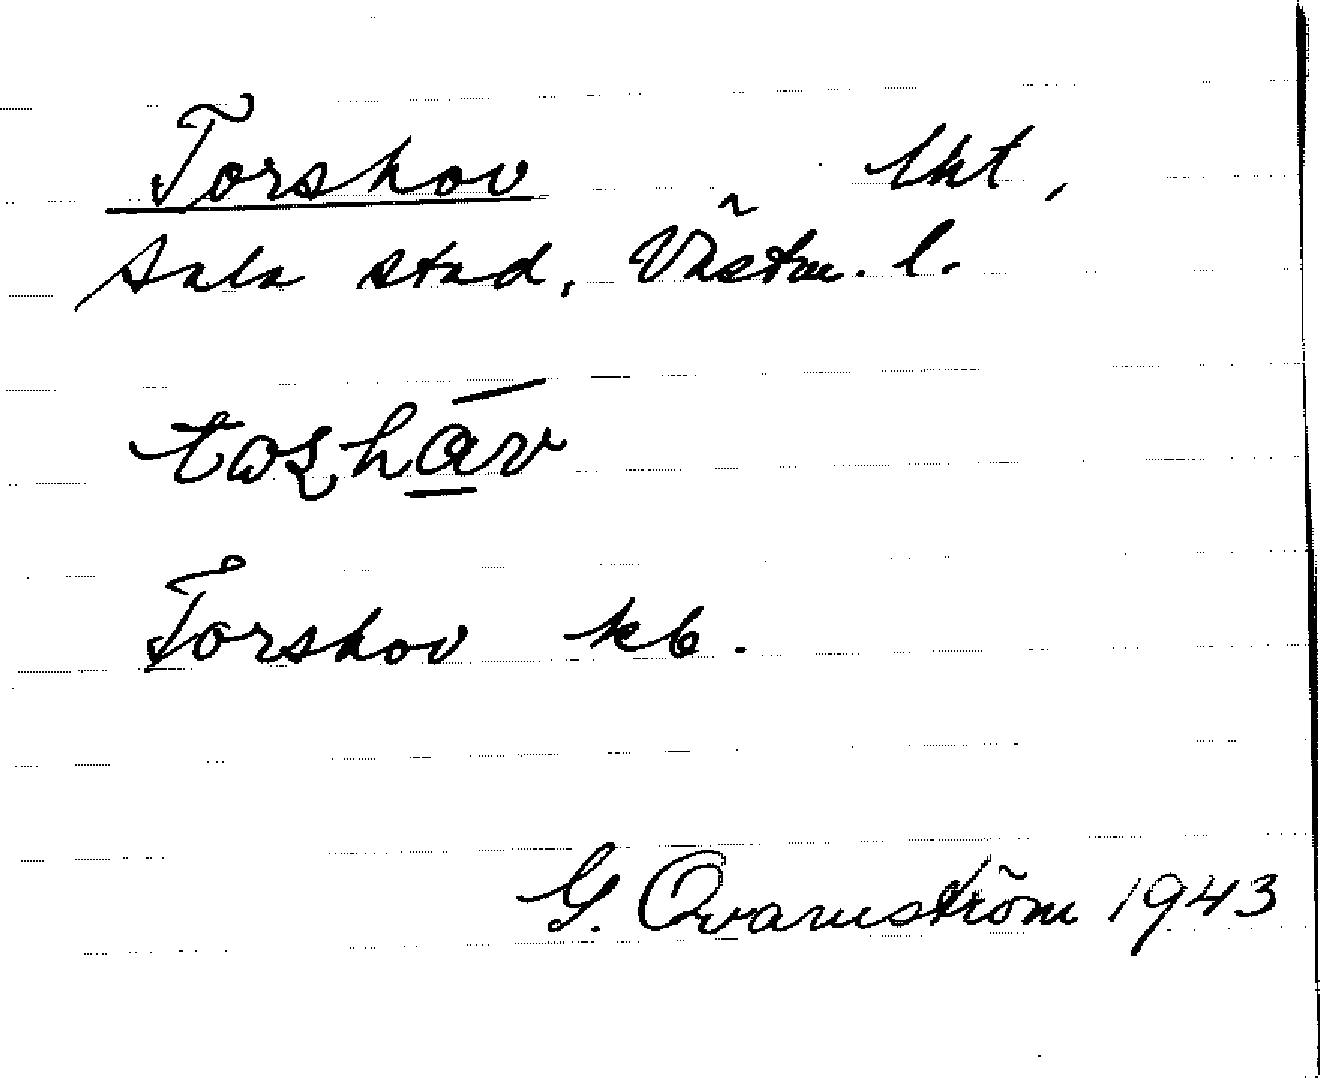 Torshov lht,
Sala stad, Västm. l.
toʂháv
Torshov kb.
G. Qvarnström 1943